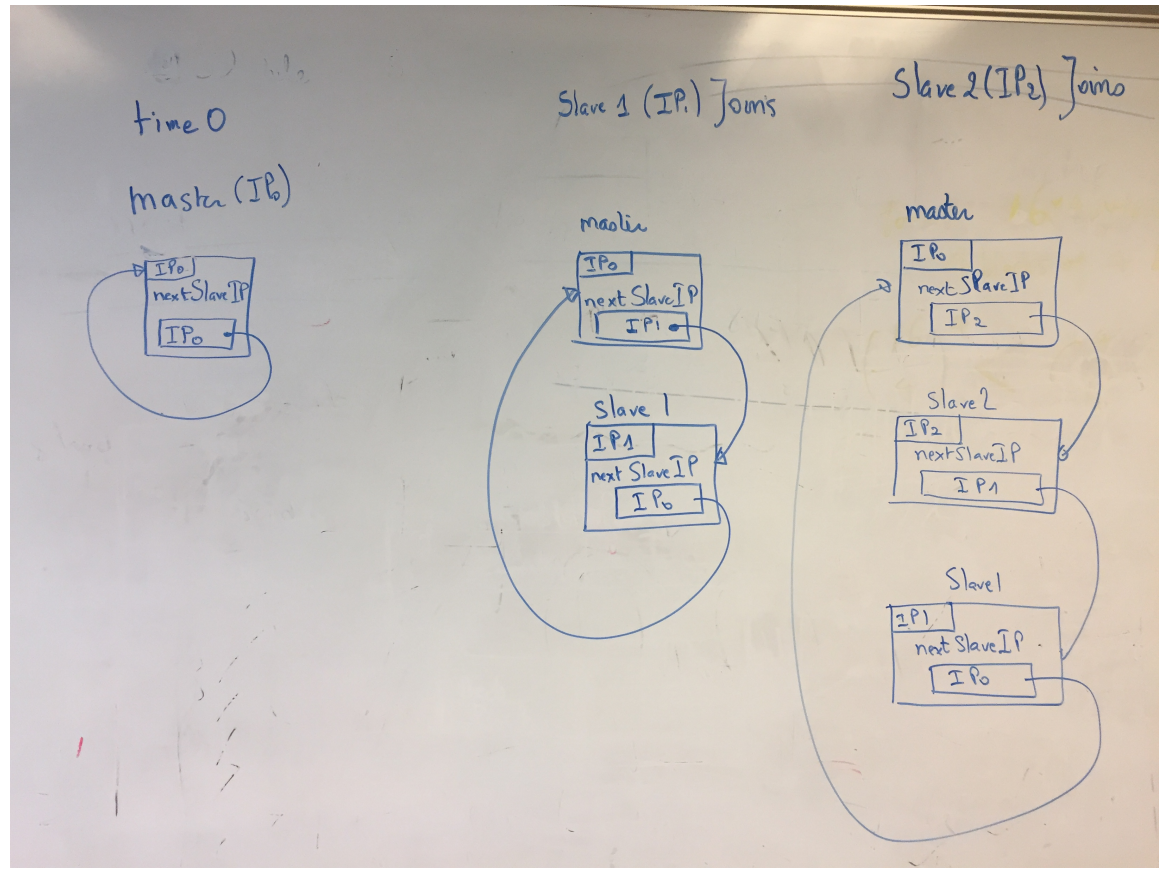 time 0
master (IP0)
IP0
nextSlaveIP
IP0
Slave 1 (IP1) Joins
master
IP0
nextSlaveIP
IP1
Slave 1
IP1
nextSlaveIP
IP0
Slave 2 (IP2) Joins
master
IP0
nextSlaveIP
IP2
Slave2
IP2
nextSlaveIP
IP1
Slave1
IP1
nextSlaveIP
IP0